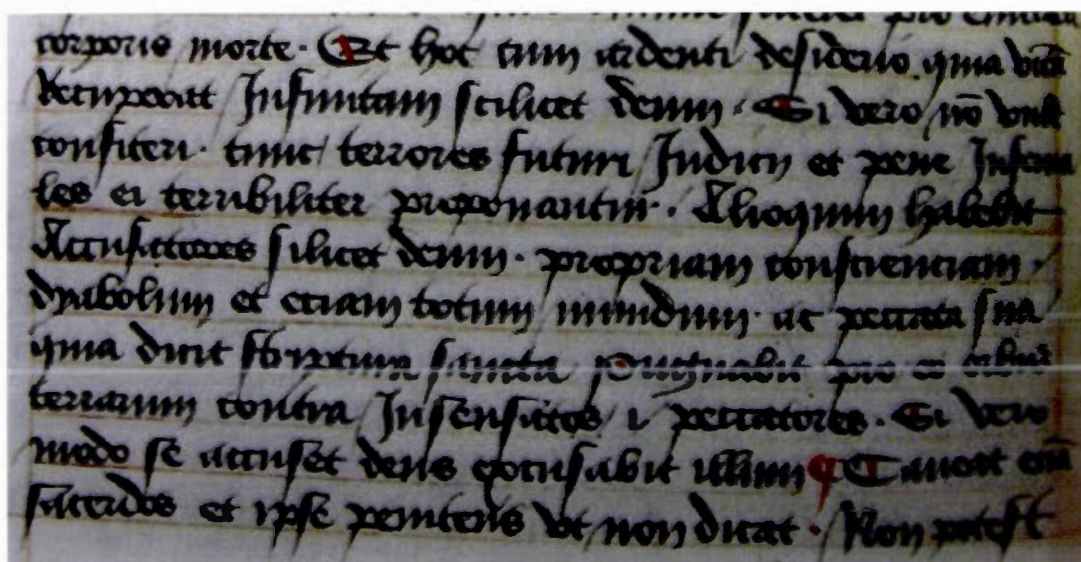 corporis morte. Et hoc cum ardenti desiderio. quia vitā
recuperat Infinitam scilicet deum. Si vero nō vult
confiteri. tunc terrores futuri Judicij et pene Inferna
les ei terribiliter proponantur. Alioquin habebit
Accusatores silicet deum. propriam conscienciam.
dyabolum et eciam totum mundum. ac peccata sua
quia dicit scriptura sancta Pugnabit pro eo orbis
terrarum contra Insensatos i peccatores. Si vero
modo se accuset deus excusabit illum Caveat enī
sacerdos et ipse penitens vt non dicat. Non potest